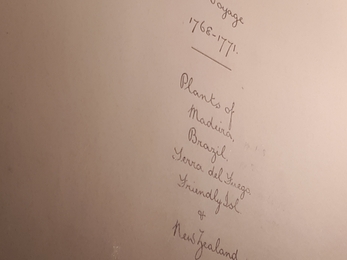 Voyage
1768-1771.
Plants of
Madeira,
Brazil
Terra del Fuego
Friendly Isl.
&
New Zealand